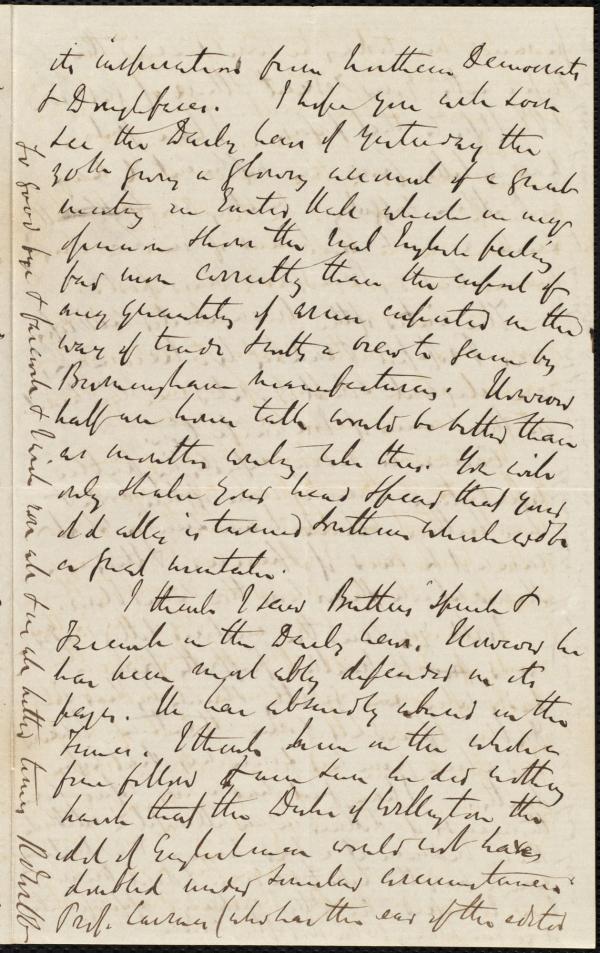 its inspirations from Northern Democrats
& Doughfaces. I hope you will soon
see the Daily News of yesterday the
30th giving a glowing account of a great
meeting in Exeter Hall which in my
opinion shows the real English feeling
far more correctly than the report of
any quantity of arms exported in the
way of trade & with a view to gain by
Birmingham manufacturers. However
half an hours talk would be better than
six months writing like this. You will
only shake your head & read that your
old ally is turned Southern which wd be
a great mistake.
I think I saw Butlers speech &
farewell in the Daily News. However he
has been most ably defended in its
pages. He was absurdly abused in the
Times. I think him on the whole a
fine fellow & am sure he did nothing
harsh that the Duke of Wellington the
idol of Englishmen would not have
doubled under similar circumstances
Prof. Cairnes (who has the ear of the editor
So good bye & farewell & Wish you all & us all better times R D Webb